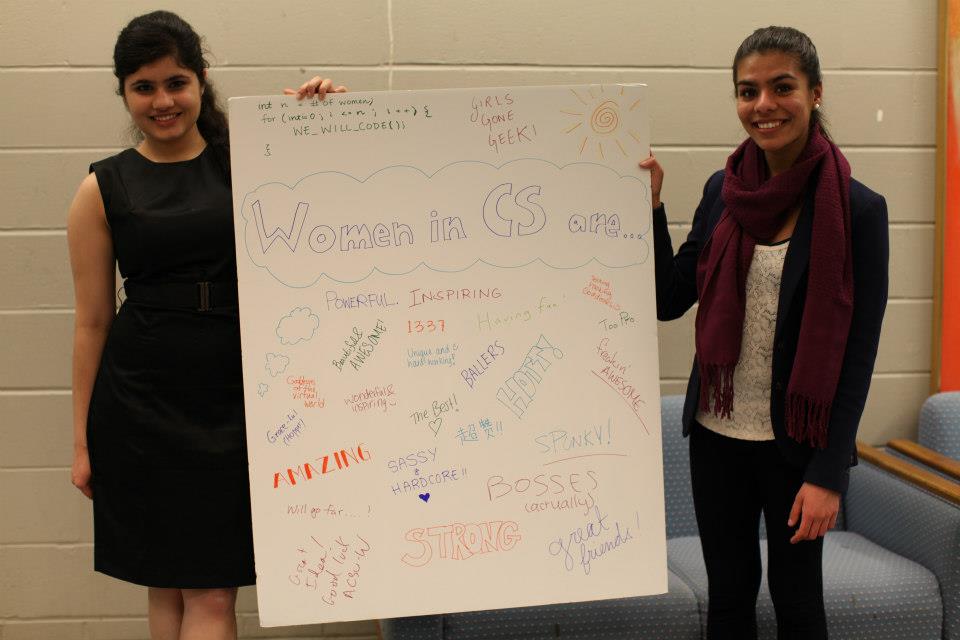 int n = # of women;
for (int i=0; i <= n; i++) {
WE_WILL_CODE();
}
GIRLS
GONE
GEEK!
Women in CS are...
POWERFUL.
INSPIRING
Beautiful &
AWESOME!
1337
Having fun!
Too Pro
Unique and
hard-working!
BALLERS
HOTTY
freakin'
AWESOME
Goddesses
of the
virtual
world
wonderful &
inspiring
The Best!
超赞!!
Grace-ful
(Hopper)
SPUNKY!
AMAZING
SASSY
&
HARDCORE!!
BOSSES
(actually)
Will go far....!
STRONG
great
friends!
Great
Idea!
Good luck
ACSW